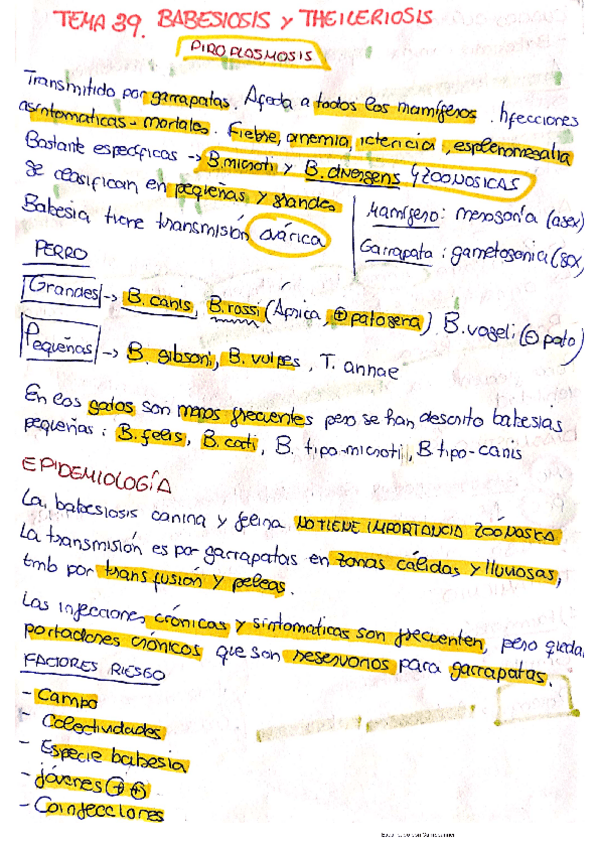 TEMA 39. BABESIOSIS y THEILERIOSIS
PIROPLASMOSIS
Transmitido por garrapatas. Afecta a todos los mamíferos. Infecciones
asintomaticas - mortales. Fiebre, anemia, ictericia, esplenomegalia
Bastante específicos -> B. microti y B. divergens ZOONOSICAS
Se clasifican en pequeñas y grandes
Babesia tiene transmisión ovárica
Mamífero: merogonia (asex)
Garrapata: gametogonia (sex)
PERRO
Grandes -> B. canis, B. rossi (África, ⊕ patogena) B. vogeli (⊖ pato)
Pequeñas -> B. gibsoni, B. vulpes, T. annae
En los gatos son menos frecuentes pero se han descrito babesias
pequeñas: B. felis, B. cati, B. tipo-microti, B tipo-canis
EPIDEMIOLOGÍA
La babesiosis canina y felina NO TIENE IMPORTANCIA ZOÓNOSICA
La transmisión es por garrapatas en zonas cálidas y lluviosas,
tmb por transfusión y peleas.
Las infecciones crónicas y sintomaticas son frecuentes, pero queda
portadores crónicos que son reservorios para garrapatas.
FACTORES RIESGO
- Campo
- Colectividades
- Especie babesia
- jóvenes ⊕⊕
- Coinfecciones